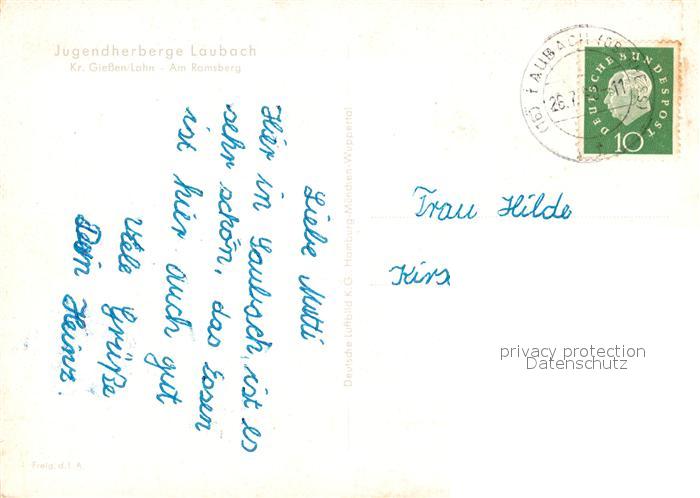 Jugendherberge Laubach
Kr. Gießen/Lahn - Am Ramsberg
Liebe Mutti
Hier in Laubach, ist es
sehr schön, das Essen
ist hier auch gut
Viele Grüße
Dein Heinz.
Freig. d. l. A.
Deutsche Luftbild K.G. Hamburg-München-Wuppertal
(16) LAUBACH
26.7.
DEUTSCHE BUNDESPOST
10
Frau Hilde
Kirx
privacy protection
Datenschutz